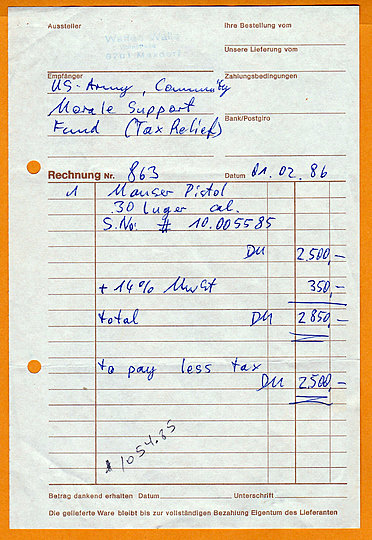 Aussteller
Ihre Bestellung vom
Unsere Lieferung vom
Empfänger
Zahlungsbedingungen
US-Army, Community
Morale Support
Bank/Postgiro
Fund (Tax Relief)
Rechnung Nr. 863 Datum 01.02.86
1 Mauser Pistol
.30 Luger cal.
S.No: # 10.005585
DM 2.500,-
+ 14% MwSt 350,-
total DM 2 850,-
to pay less tax
DM 2500,-
1054.85
Betrag dankend erhalten Datum Unterschrift
Die gelieferte Ware bleibt bis zur vollständigen Bezahlung Eigentum des Lieferanten